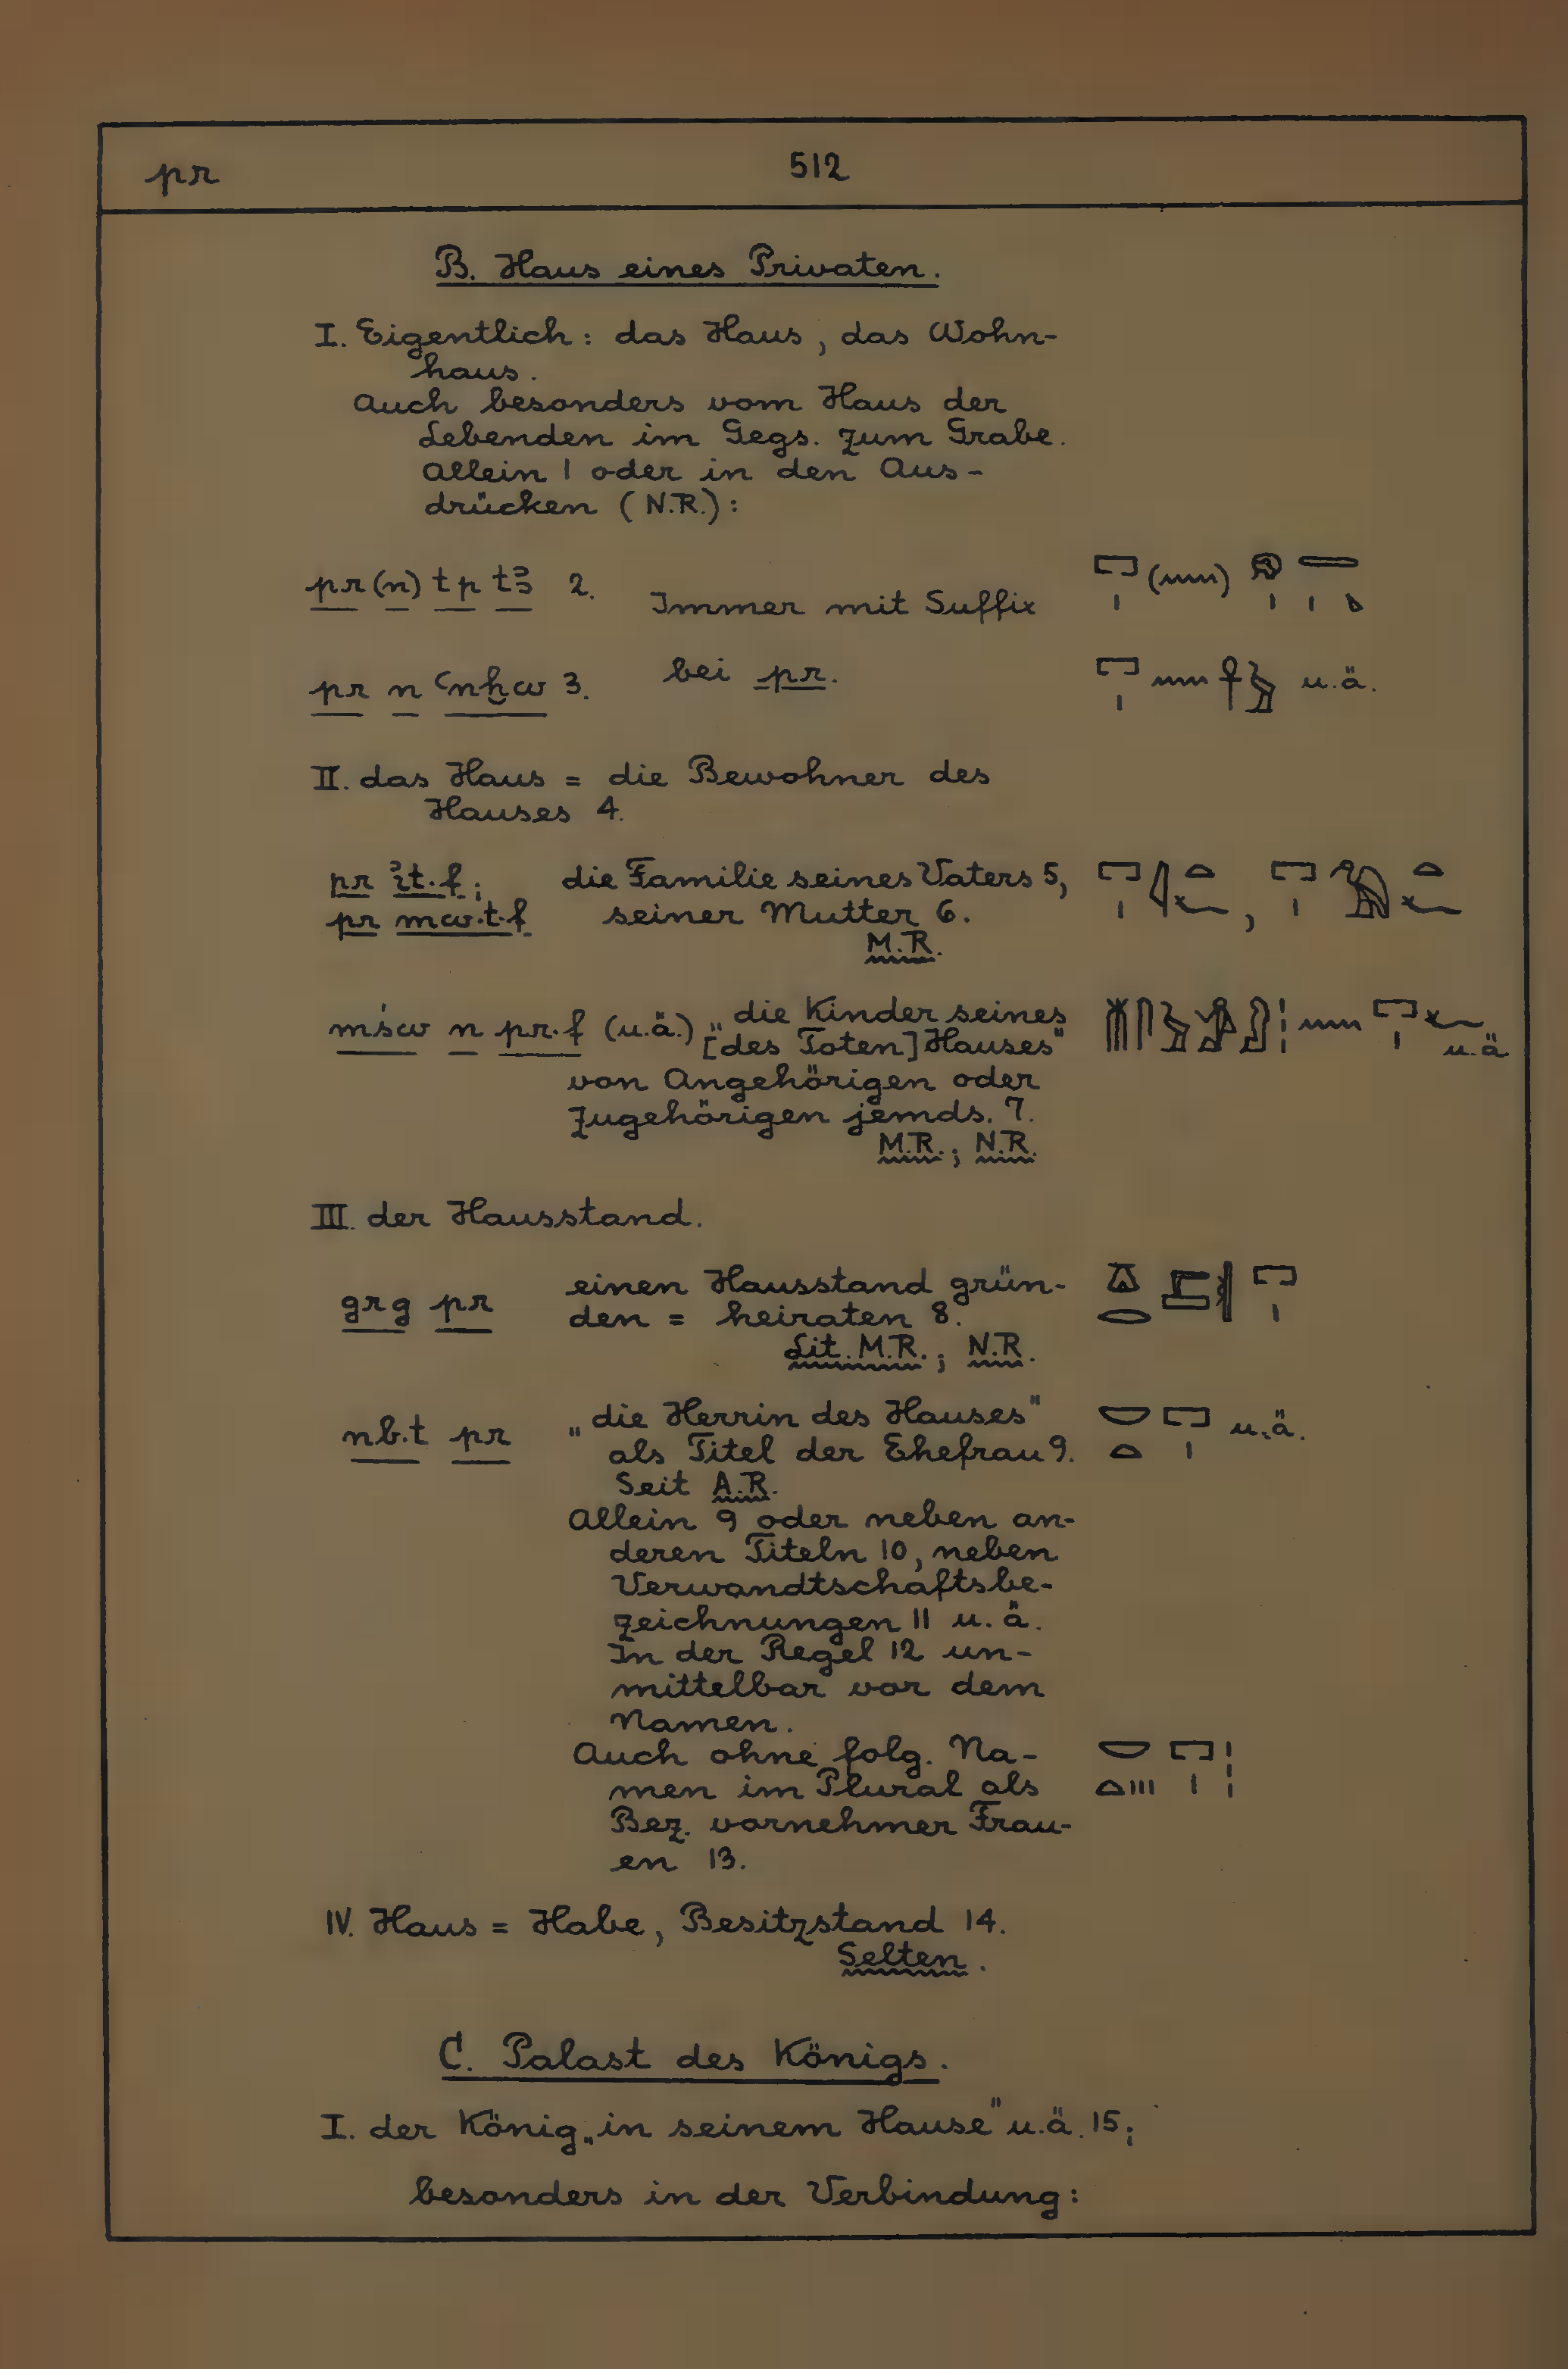 pr 512
B. Haus eines Privaten.
I. Eigentlich: das Haus, das Wohn-
haus.
Auch besonders vom Haus der
Lebenden im Gegs. zum Grabe.
Allein 1 oder in den Aus-
drücken (N.R.):
pr (n) tp tꜣ 2. Immer mit Suffix 𓉐𓏤 (𓈖) 𓁶𓏤 𓇾𓏤
pr n ꜥnḫw 3. bei pr. 𓉐𓏤 𓈖 𓋹 𓅱 u.ä.
II. das Haus = die Bewohner des
Hauses 4.
pr ı͗t.f; die Familie seines Vaters 5, 𓉐𓏤 𓇋𓏏𓆑, 𓉐𓏤 𓅐𓏏𓆑
pr mw.t.f seiner Mutter 6.
M.R.
mśw n pr.f (u.ä.) „die Kinder seines 𓄟𓋴𓅱𓀀𓁐𓏪 𓈖 𓉐𓏤𓆑
[des Toten] Hauses" u.ä.
von Angehörigen oder
Zugehörigen jemds. 7.
M.R.; N.R.
III. der Hausstand.
grg pr einen Hausstand grün- 𓎼𓂋𓍔 𓉐𓏤
den = heiraten 8.
Lit. M.R.; N.R.
nb.t pr „die Herrin des Hauses" 𓎟𓏏 𓉐𓏤 u.ä.
als Titel der Ehefrau 9.
Seit A.R.
Allein 9 oder neben an-
deren Titeln 10, neben
Verwandtschaftsbe-
zeichnungen 11 u. ä.
In der Regel 12 un-
mittelbar vor dem
Namen.
Auch ohne folg. Na- 𓎟𓏏𓏥 𓉐𓏤𓏪
men im Plural als
Bez. vornehmer Frau-
en 13.
IV. Haus = Habe, Besitzstand 14.
Selten.
C. Palast des Königs.
I. der König „in seinem Hause" u.ä. 15;
besonders in der Verbindung: